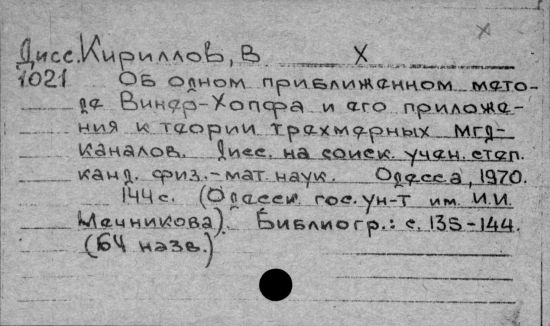 Х
Дисс. Кириллов, В Х
1021 Об одном приближенном мето-
де Винер-Хопфа и его приложе-
ния к теории трехмерных МГД-
каналов. Дисс. на соиск. учен. степ.
канд. физ.-мат. наук. Одесса, 1970.
144 с. (Одесск. гос. ун-т им. И.И.
Мечникова). Библиогр.: с. 135-144.
(64 назв.)